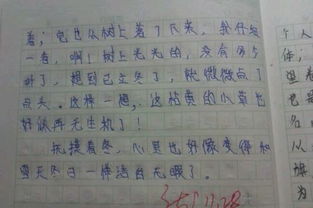 着；它也从树上落了下来，我仔细
一看，啊！树上光光的，没有多少
叶了，想到已立冬了，就微微点了
点头。这样一想，这枯黄的小草也
好似再无生机了！
抚摸着冬，心里也好像变得和
雪天冬日一样洁白无暇了。
个人
体；
也是
名
从
旗
为